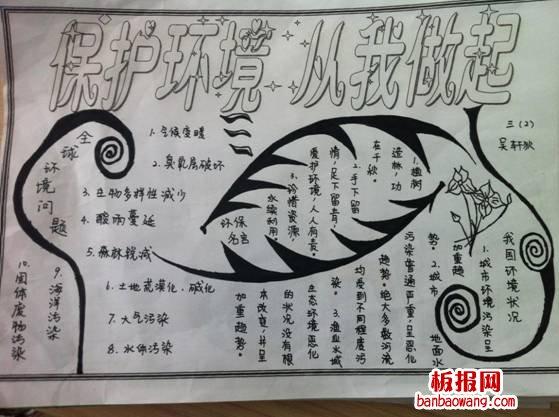 保护环境 从我做起
三(2)
吴轩
全球环境问题
1.气候变暖
2.臭氧层破坏
3.生物多样性减少
4.酸雨蔓延
5.森林锐减
6.土地荒漠化、碱化
7.大气污染
8.水体污染
9.海洋污染
10.固体废物污染
环保
名言
1.植树
造林,功
在千秋。
2.手下留
情,足下留青
爱护环境,人人有责。
3.珍惜资源,
永续利用。
我国环境状况
1.城市环境污染呈
加重趋
势。2.城市 地面水
污染普遍严重,呈恶化
趋势。绝大多数河流
均受到不同程度污
染。3.渔业水域
生态环境恶化
的状况没有根
本改变,并呈
加重趋势。
板报网
banbaowang.com